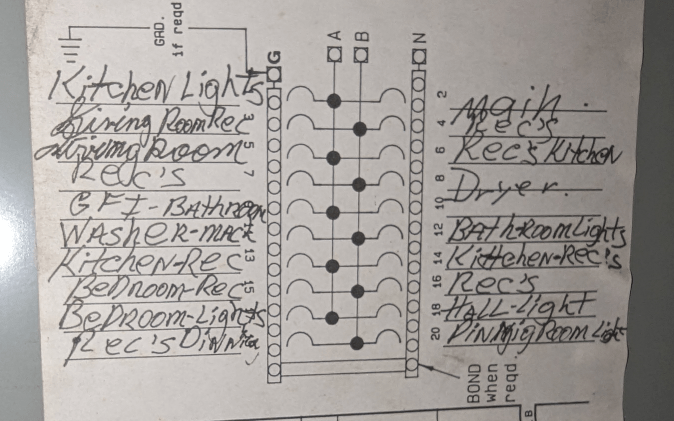 GRD.
if reqd
A
B
G
N
Kitchen Lights
Living Room Rec
Living Room
Rec's
GFI-BAthroom
WASHeR-MAC
Kitchen-Rec
BeDroom-Rec
BeDroom-Lights
Rec's Dinning
3
5
7
13
15
2
4
6
8
10
12
14
16
18
20
Main.
Rec's
Rec's Kitchen
Dryer.
BAth-RoomLights
Kittchen-Rec's
Rec's
HALL-Light
DinningRoom Light
BOND
when
reqd
B